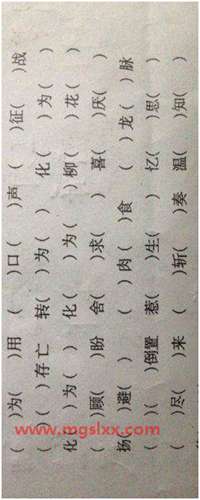 ( )为( )用 ( )口( )声 ( )征( )战
( )( )存亡 转( )为( ) 化( )为( )
化( )为( ) 化( )为( ) ( )柳( )花
( )顾( )盼 舍( )求( ) 喜( )厌( )
扬( )避( ) ( )肉( )食 ( )龙( )脉
( )( )倒置 惹( )生( ) 忆( )思( )
( )尽( )来 ( )斩( )奏 温( )知( )
www.mgslxx.com